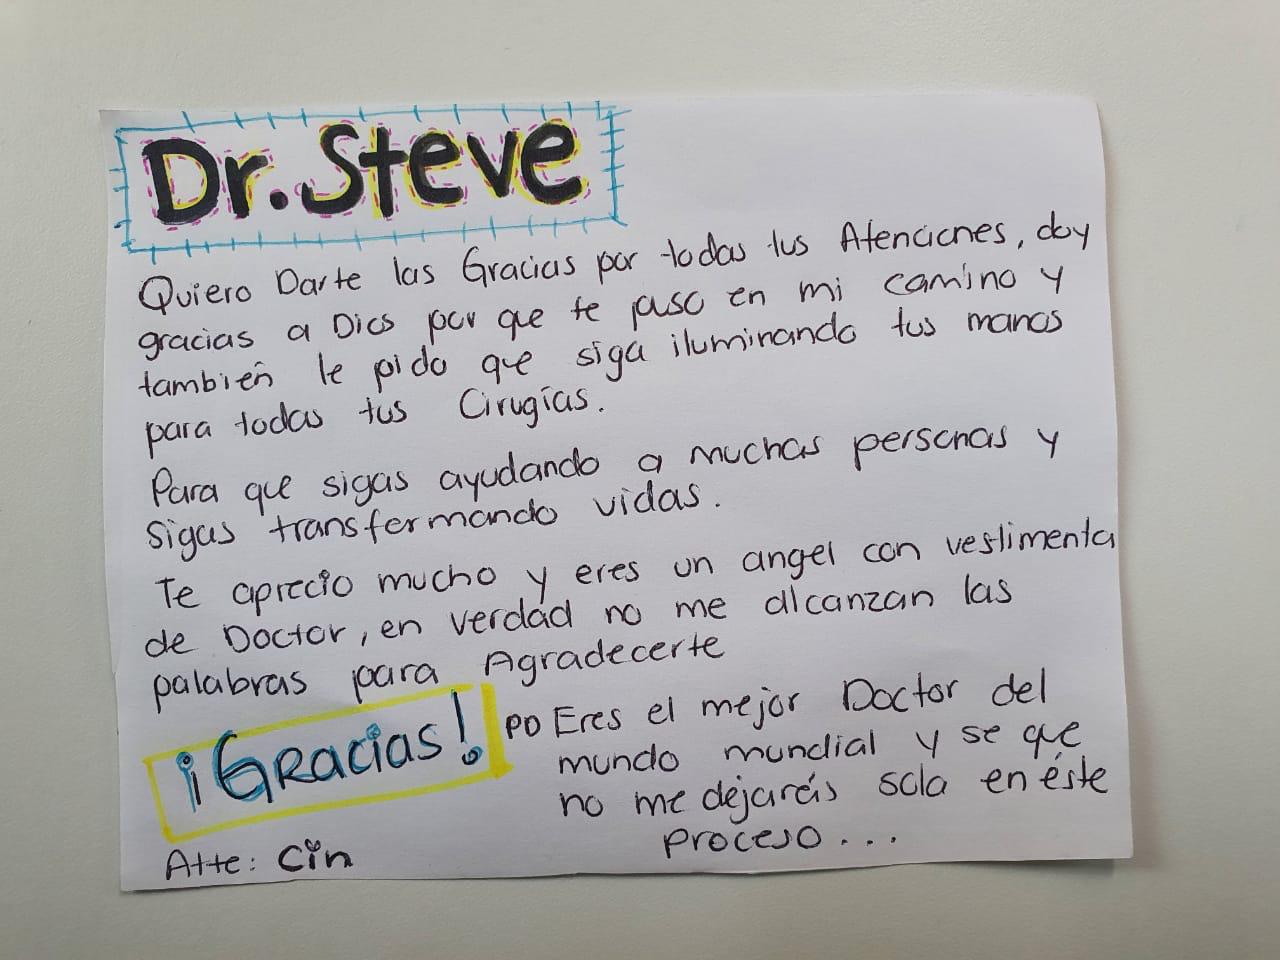 Dr. Steve
Quiero Darte las Gracias por todas tus Atenciones, doy
gracias a Dios por que te puso en mi camino y
también le pido que siga iluminando tus manos
para todas tus Cirugías.
Para que sigas ayudando a muchas personas y
sigas transformando vidas.
Te aprecio mucho y eres un angel con vestimenta
de Doctor, en verdad no me alcanzan las
palabras para Agradecerte
¡Gracias!
Atte: Cin
PD Eres el mejor Doctor del
mundo mundial y se que
no me dejarás sola en éste
proceso...